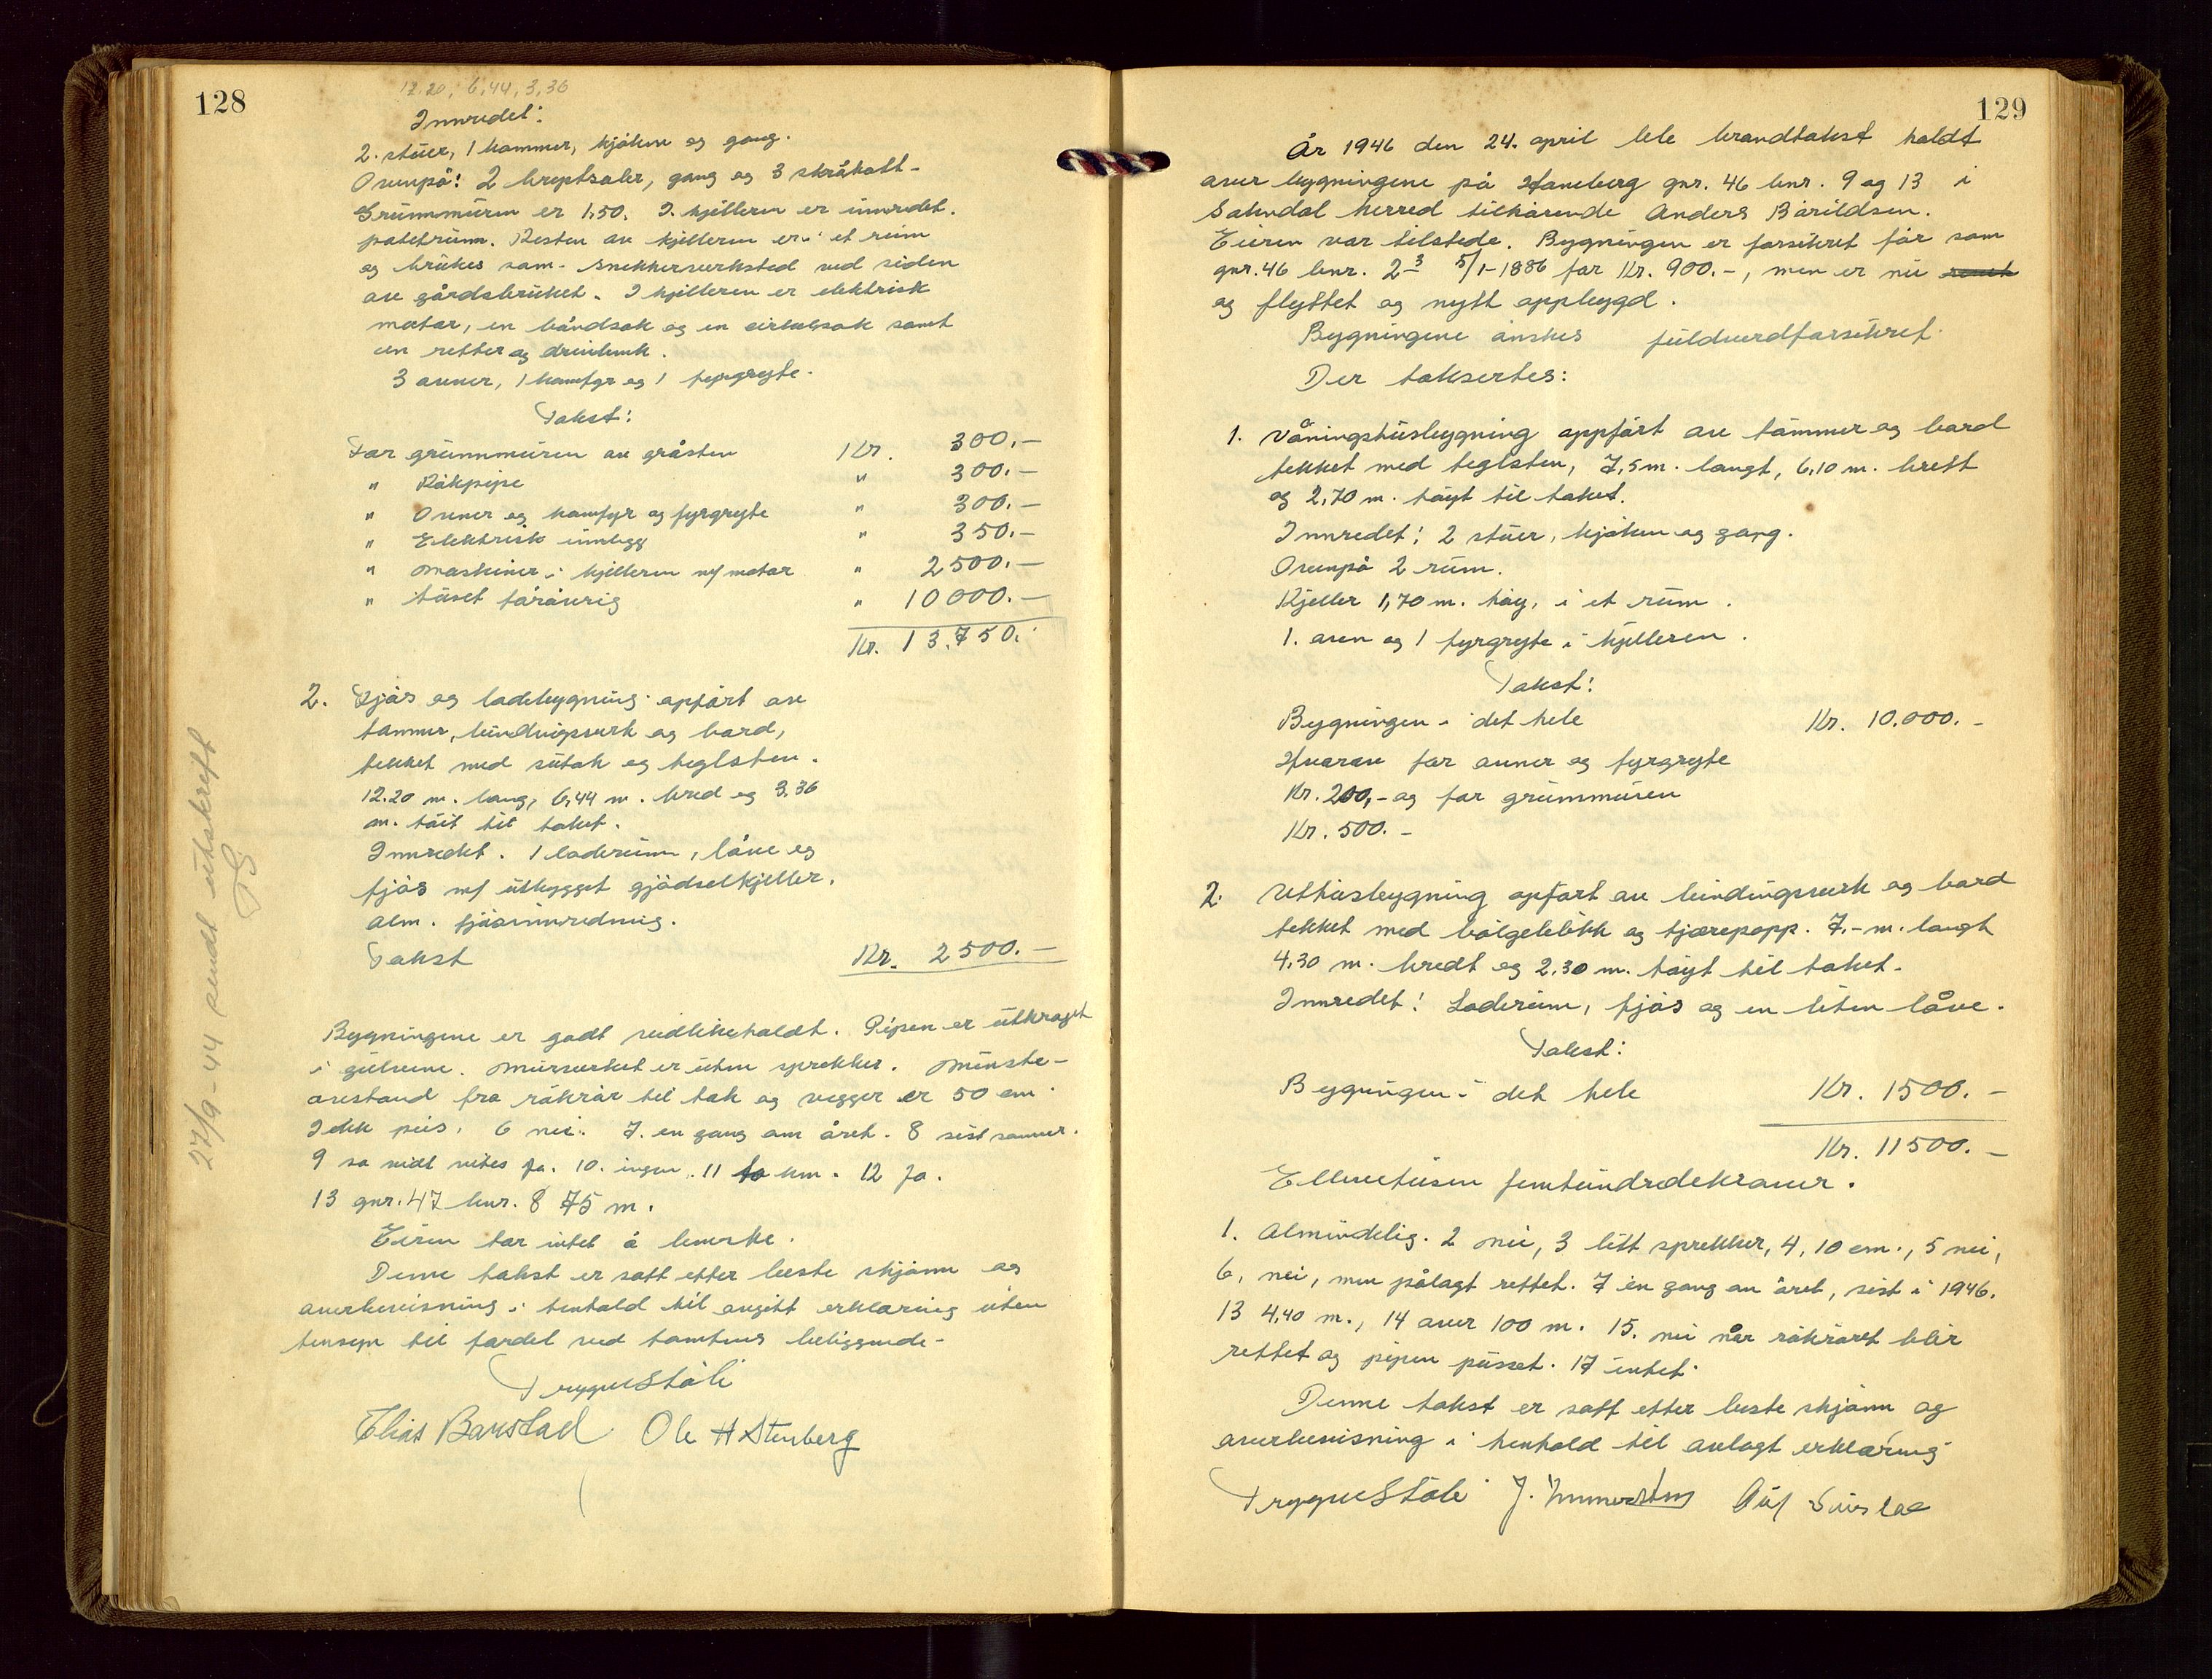 128
12.20, 6,44, 3,36
Innredet:
2. stuer, 1 kammer, kjøken og gang.
Ovenpå: 2 kvistsaler, gang og 3 skråkott-
Grunnmuren er 1,50. I kjelleren er innredet.
potetrum. Resten av kjelleren er i et rum
og brukes som snekkerverksted ved siden
av gårdsbruket. I kjelleren er elektrisk
motor, en båndsak og en cirkelsak samt
en retter og dreiebenk.
3 ovner, 1 komfyr og 1 fyrgryte.
Takst:
For grunnmuren av gråsten Kr. 300.-
" Rökpipe " 300.-
" Ovner og komfyr og fyrgryte " 300.-
" Elektrisk innlegg " 350.-
" Maskiner i kjelleren m/ motor " 2500.-
" huset forövrig " 10000.-
Kr. 13.750.
2. Fjös og ladebygning opfört av
tømmer, bindingsverk og bord,
tekket med sutak og teglsten.
12.20 m. lang, 6,44 m. bred og 3.36
m. höit til taket.
Innredet. 1 laderum, låve og
fjös m/ utbygget gjödselkjeller.
Alm. fjösinnredning.
Takst Kr. 2500.-
Bygningene er godt vedlikeholdt. Pipen er utkraget
i gulvene. Murverket er uten sprekker. Minste-
avstand fra rökrör til tak og vegger er 50 cm.
Ikke peis. 6 nei. 7. en gang om året. 8 sist sommer.
9 so vidt vites ja. 10. ingen. 11 km. 12 ja.
13 gnr. 47 bnr. 8 75 m.
Eieren har intet å bemerke.
Denne takst er satt efter beste skjönn og
overbevisning i henhold til avgitt erklæring uten
hensyn til fordel ved tomtens beliggende-
Trygve Ståli
Elias Barstad Ole H Stenberg
27/9-44 sendt utskrift
TS
129
År 1946 den 24. april ble brandtakst holdt
over bygningene på Haneberg gnr. 46 bnr. 9 og 13 i
Sokndal herred tilhörende Anders Bårildsen.
Eieren var tilstede. Bygningen er forsikret för som
gnr. 46 bnr. 2 3 5/1-1886 for Kr. 900.-, men er nu
og flyttet og nytt oppbygd.
Bygningene önskes fuldverdforsikret.
Der taksertes:
1. Våningshusbygning oppfört av tömmer og bord
tekket med teglsten, 7,5 m. langt, 6,10 m. brett
og 2,70 m. höyt til taket.
Innredet: 2 stuer, kjöken og gang.
Ovenpå 2 rum.
Kjeller 1,70 m. höy, i et rum.
1. oven og 1 fyrgryte i kjelleren.
Takst:
Bygningen i det hele Kr. 10.000.-
Hvorav for ovner og fyrgryte
Kr. 200,- og for grunnmuren
Kr. 500.-
2. Uthusbygning opfört av bindingsverk og bord
tekket med bölgeblikk og tjærepapp. 7.- m. langt
4,30 m. bredt og 2.30 m. höyt til taket.
Innredet: Laderum, fjös og en liten låve.
Takst:
Bygningen i det hele Kr. 1500.-
Kr. 11500.-
Ellevetusen femhundredekroner.
1. Almindelig. 2 nei, 3 litt sprekker, 4, 10 cm., 5 nei,
6, nei, men pålagt rettet. 7 en gang om året, sist i 1946.
13 4,40 m., 14 over 100 m. 15. nei når rökröret blir
rettet og pipen pusset. 17 intet.
Denne takst er satt efter beste skjönn og
overbevisning i henhold til avlagt erklæring
Trygve Ståli